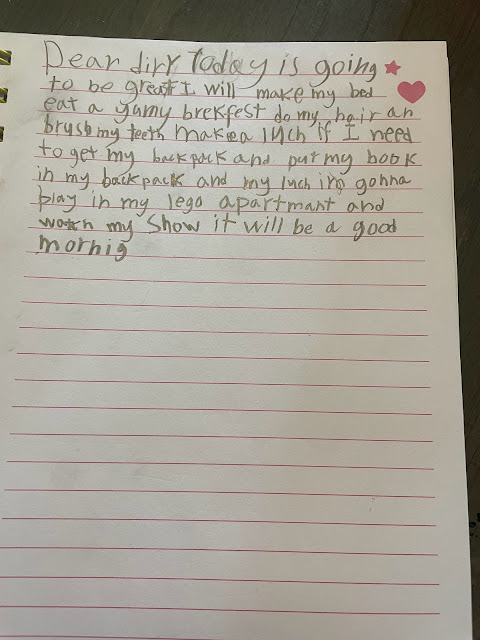 Dear diry Today is going
to be great I will make my bed
eat a yumy brekfest do my hair an
brush my teeth make a luch if I need
to get my backpack and put my book
in my backpack and my luch im gonna
play in my lego apartmant and
watch my Show it will be a good
mornig